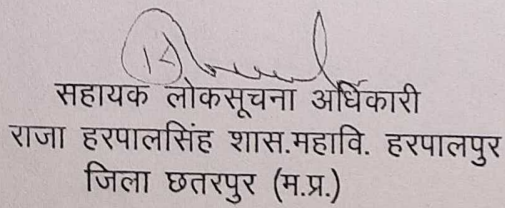 सहायक लोकसूचना अधिकारी
राजा हरपालसिंह शास.महावि. हरपालपुर
जिला छतरपुर (म.प्र.)